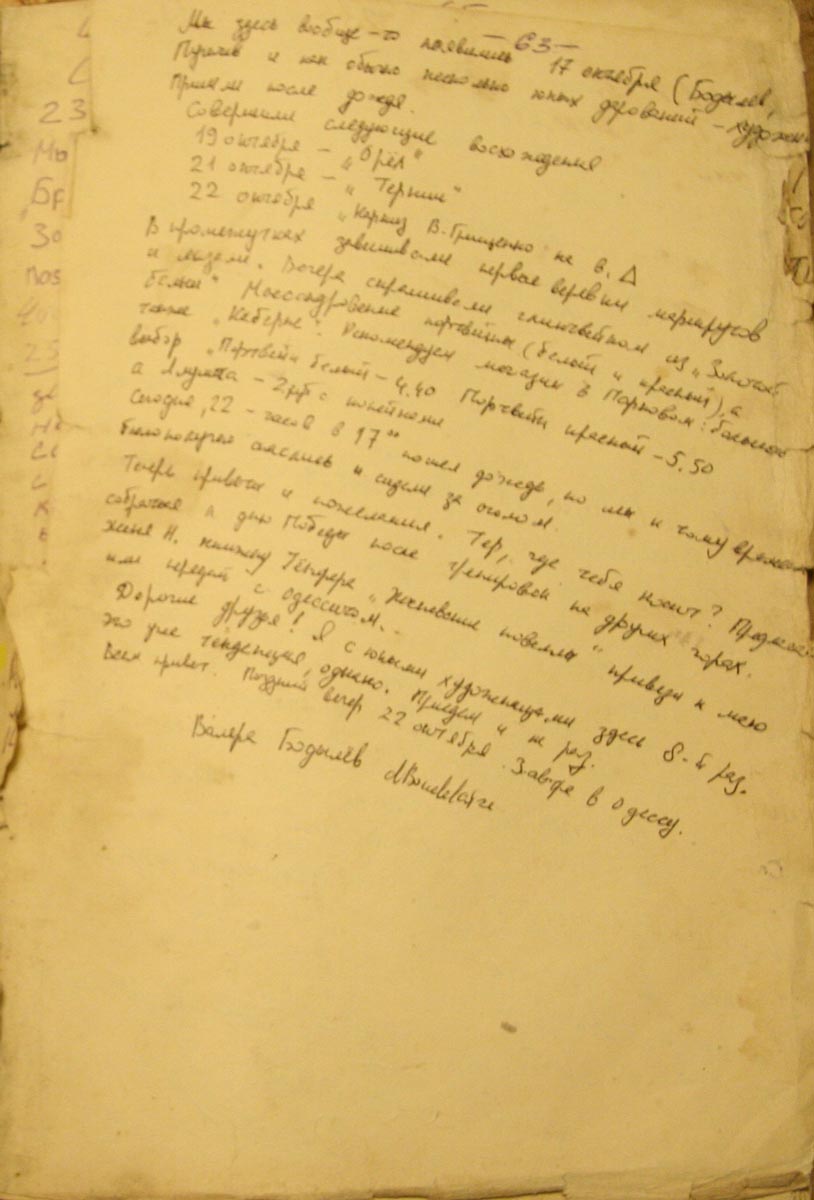 — 63 —
Мы здесь вообще-то появились 17 октября (Бодылев,
и как обычно несколько юных дарований – художн
Пришли после дождя.
Совершили следующие восхождения
19 октября – „Орёл“
21 октября – „Терние“
22 октября „Карниз В. Грищенко на в. Δ
В промежутках завешивали первые верёвки маршрутов
и лазали. Вечера скрашивали глинтвейном из „Золотой
Массандровские портвейны (белый и красный), а
также „Каберне“. Рекомендуем магазин в Парковом: большой
выбор „Портвейн белый – 4.40 Портвейн красный – 5.50
а Алушта – 2 с копейками
Сегодня, 22 – часов в 17°° пошел дождь, но мы к тому времени
и сидели за столом.
Теперь приветы и пожелания. Тер, где тебя носит? Предлаг
собраться к дню Победы после тренировок на других горах.
Женя Н. книжку Тёпфера „Женевские новеллы“ привези к маю
или передай с одесситом.
Дорогие друзья! Я с юными художницами здесь 8-й раз.
это уже тенденция, однако. Приедем и не раз.
Всем привет. Поздний вечер 22 октября. Завтра в Одессу.
Валера Бодылёв
23
Мы
Зо
поз
25